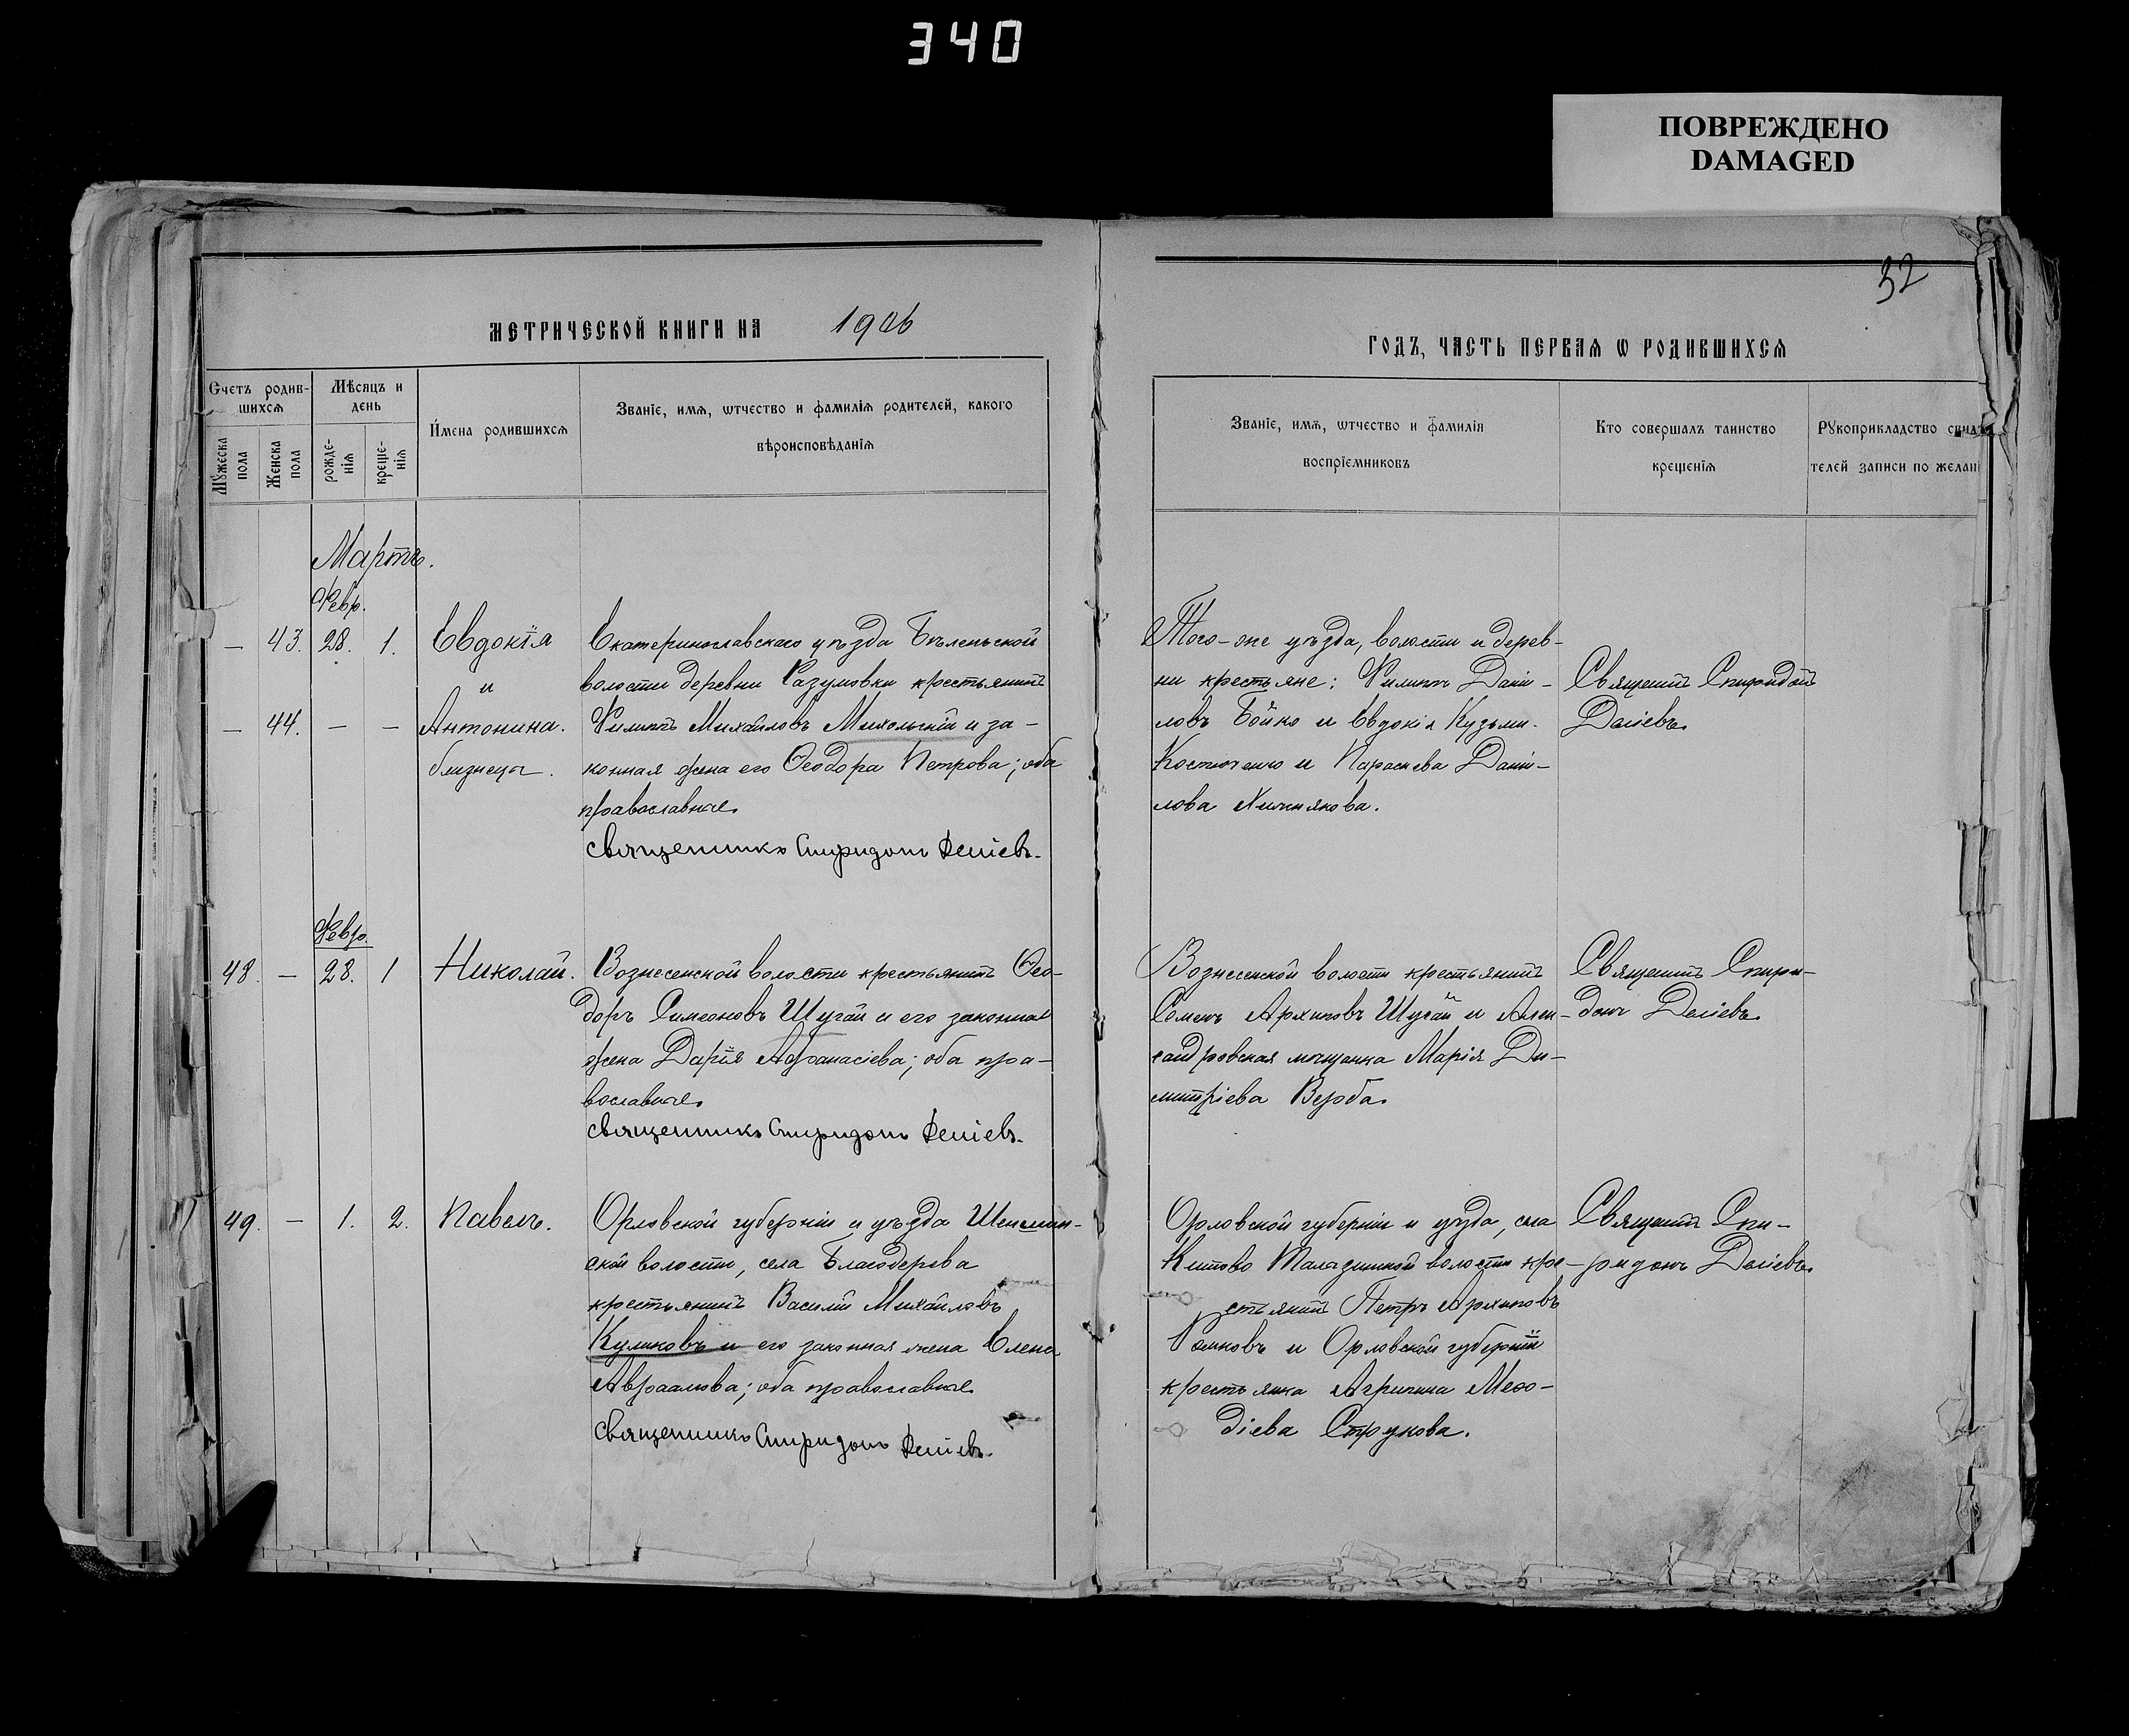 340
ПОВРЕЖДЕНО
DAMAGED
32
МЕТРИЧЕСКОЙ КНИГИ НА 1906
ГОДЪ, ЧАСТЬ ПЕРВАѦ Ѡ РОДИВШИХСѦ
Счетъ родив-
шихсѧ
Мужеска
пола
Женска
пола
Мѣсяцъ и
день
рожде-
нія
креще-
нія
Имена родившихсѧ
Званіе, имѧ, ѡтчество и фамиліѧ родителей, какого
вѣроисповѣданіѧ
Званіе, имѧ, ѡтчество и фамилія
воспріемниковъ
Кто совершалъ таинство
крещенія
Рукоприкладство свидѣ
телей записи по желан
Мартъ.
Февр.
— 43. 28. 1. Евдокія
и
— 44. — — Антонина.
близнецы.
Екатеринославскаго уѣзда Бѣленьской
волости деревни Разумовки крестьянинъ
Филиппъ Михаиловъ Микольскій и за-
конная жена его Ѳеодора Петрова; оба
православные.
Священникъ Спиридонъ Деліевъ.
Того-же уѣзда, волости и дерев-
ни крестьяне: Филиппъ Дани-
ловъ Бойко и Евдокія Кузьми.
Костюченко и Параскева Дани-
лова
Священникъ Спиридонъ
Деліевъ.
Февр.
48. — 28. 1 Николай.
Вознесенской волости крестьянинъ Ѳео-
доръ Симеоновъ Шугай и его законная
жена Дарія Афанасіева; оба пра-
вославные.
Священникъ Спиридонъ Деліевъ.
Вознесенской волости крестьянинъ
Семенъ Архиповъ Шугай и Алек-
сандровская мѣщанка Марія Ди-
митріева Верба.
Священникъ Спири-
донъ Деліевъ.
49. — 1. 2. Павелъ.
Орловской губерніи и уѣзда
ской волости, села Благодерева
крестьянинъ Василій Михаиловъ
Куликовъ и его законная жена Елена
Авраамова; оба православные.
Священникъ Спиридонъ Деліевъ.
Орловской губерніи и уѣзда, села
волости кре-
стьянинъ Петръ Архиповъ
и Орловской губерніи
крестьянка Агрипина Меѳо-
діева Струкова.
Священникъ Спи-
ридонъ Деліевъ.